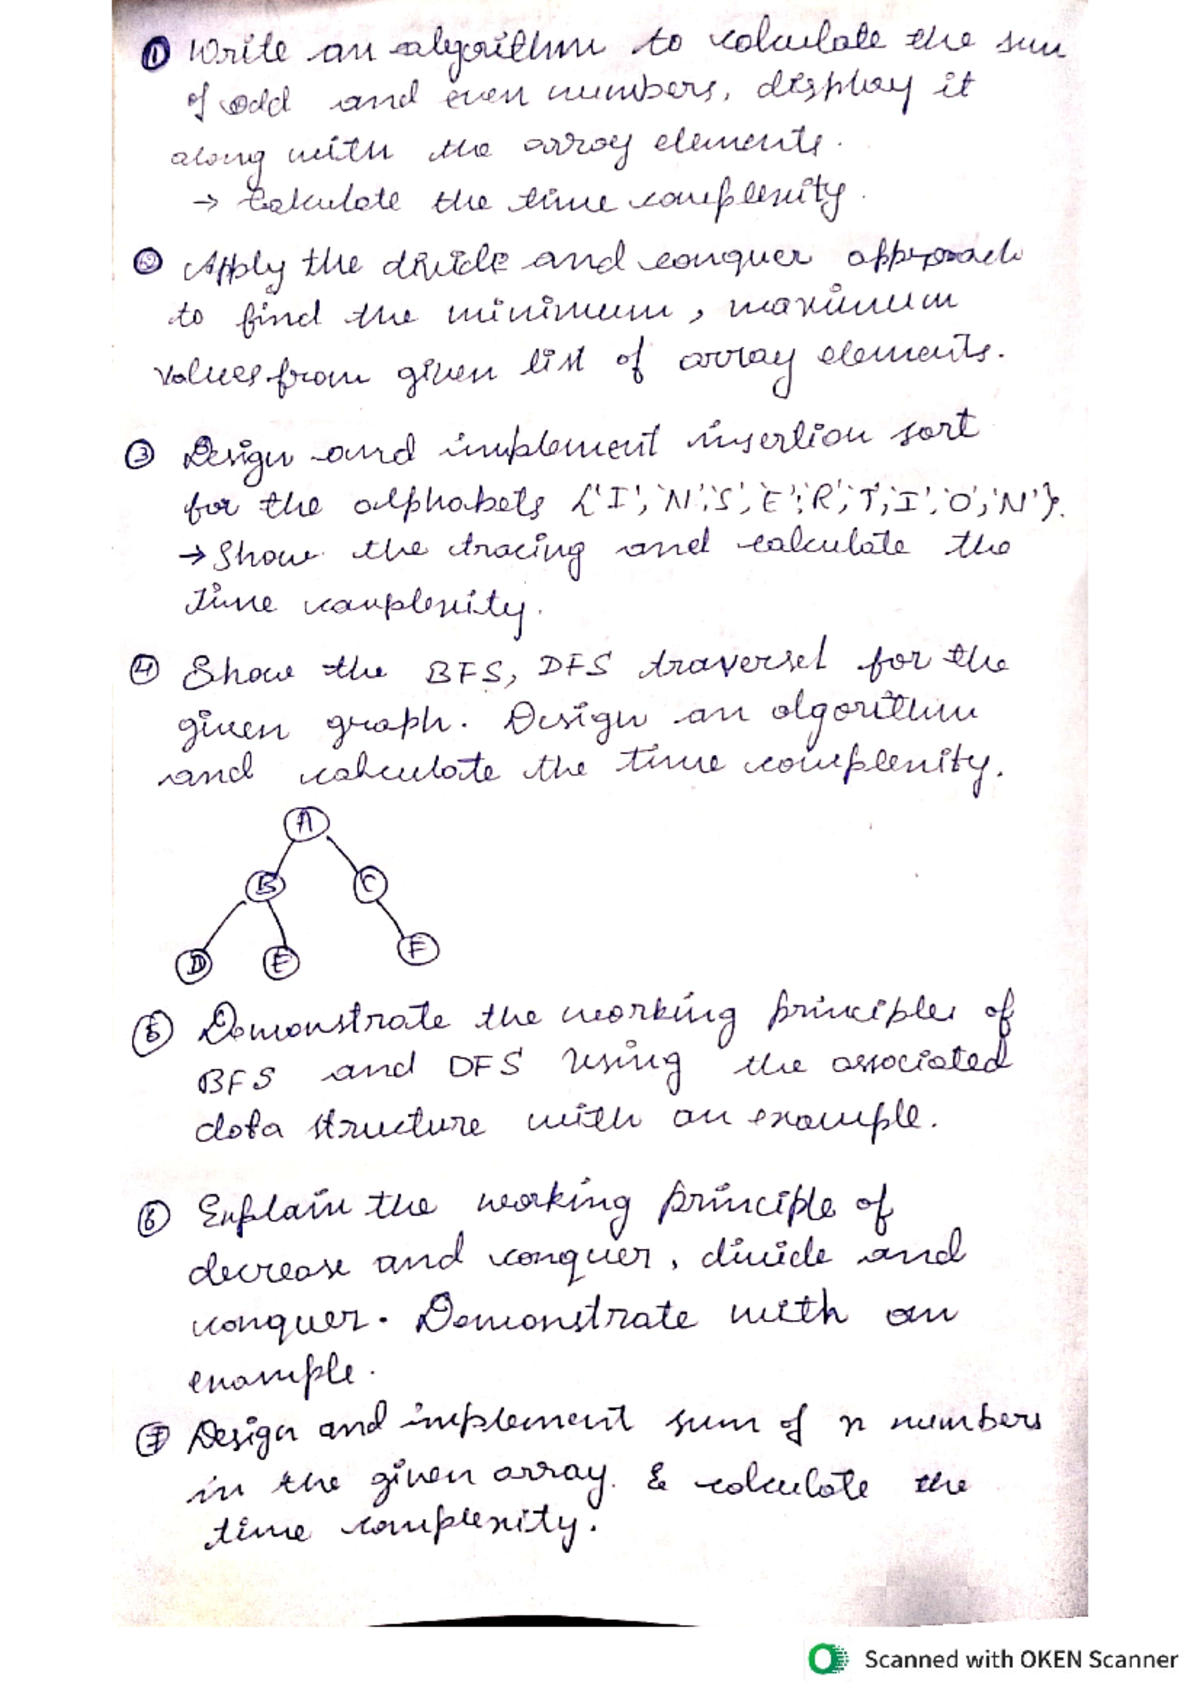 ① Write an algorithm to calculate the sum
of odd and even numbers, display it
along with the array elements.
→ Calculate the time complexity.
② Apply the divide and conquer approach
to find the minimum, maximum
values from given list of array elements.
③ Design and implement insertion sort
for the alphabets {'I', 'N', 'S', 'E', 'R', 'T', 'I', 'O', 'N'}.
→ Show the tracing and calculate the
time complexity.
④ Show the BFS, DFS traversel for the
given graph. Design an algorithm
and calculate the time complexity.
A
B C
D E F
⑤ Demonstrate the working principles of
BFS and DFS using the associated
data structure with an example.
⑥ Explain the working principle of
decrease and conquer, divide and
conquer. Demonstrate with an
example.
⑦ Design and implement sum of n numbers
in the given array. & calculate the
time complexity.
Scanned with OKEN Scanner